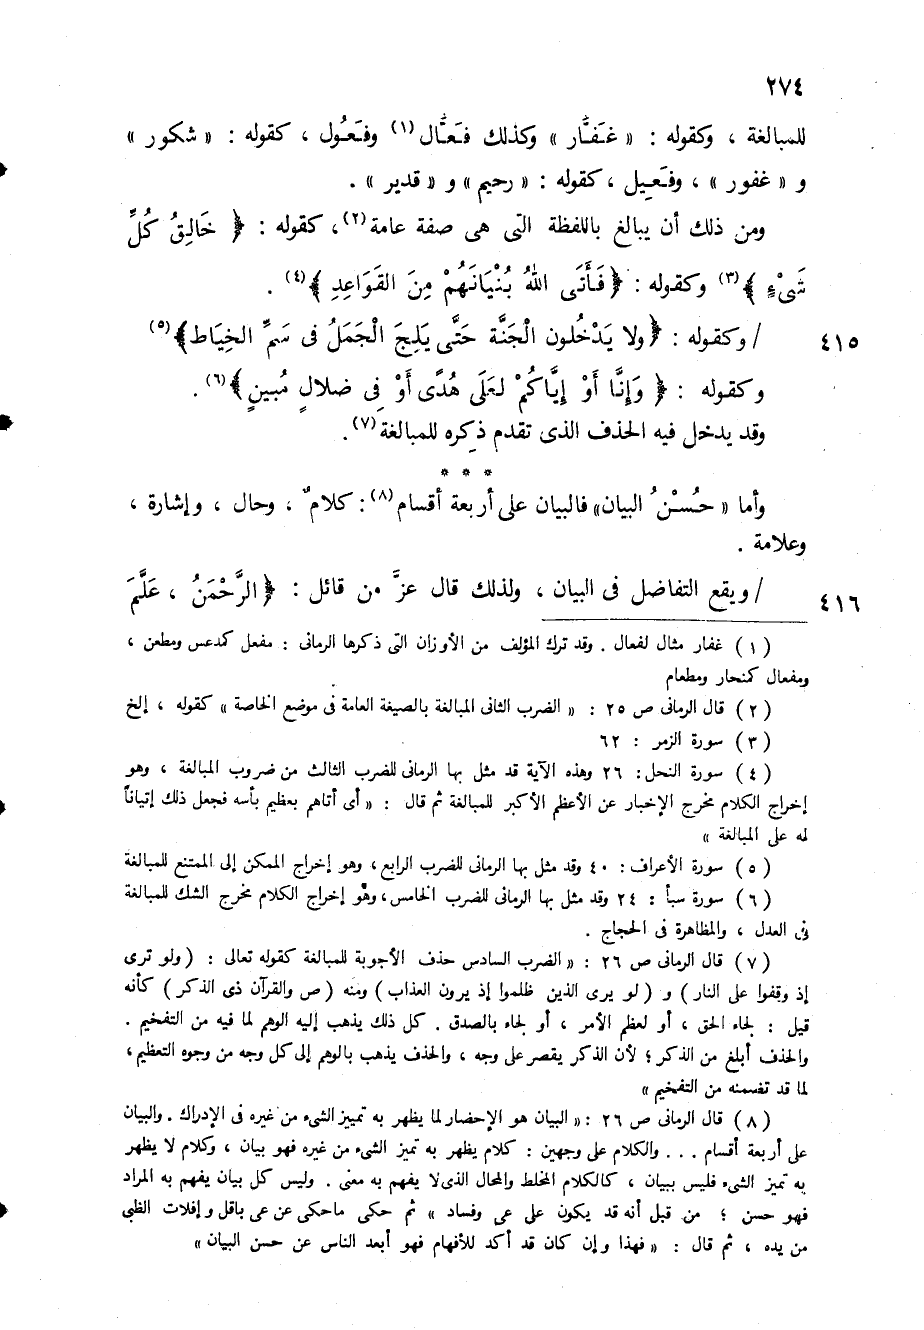 ٢٧٤
للمبالغة ، وكقوله : « غَفَّار » وكذلك فَعَّال (١) وفَعُول ، كقوله : « شكور »
و « غفور » ، وفَعِيل ، كقوله : « رحيم » و « قدير » .
ومن ذلك أن يبالغ باللفظة التى هى صفة عامة (٢) ، كقوله : ﴿ خَالِقُ كُلِّ
شَىْءٍ ﴾ (٣) وكقوله : ﴿ فَأَتَى اللهُ بُنْيَانَهُمْ مِنَ القَوَاعِدِ ﴾ (٤) .
٤١٥ / وكقوله : ﴿ ولا يَدْخُلون الْجَنَّة حَتَّى يَلِجَ الْجَمَلُ فى سَمِّ الخِيَاط ﴾ (٥)
وكقوله : ﴿ وَإِنَّا أَوْ إِيَّاكُمْ لَعَلَى هُدًى أَوْ فِى ضلالٍ مُبينٍ ﴾ (٦) .
وقد يدخل فيه الحذف الذى تقدم ذكره للمبالغة (٧) .
* * *
وأما « حُسْنُ البيان » فالبيان على أربعة أقسام (٨) : كلامٌ ، وحال ، وإشارة ،
وعلامة .
٤١٦ / ويقع التفاضل فى البيان ، ولذلك قال عزَّ من قائل : ﴿ الرَّحْمَنُ ، عَلَّمَ
(١) غفار مثال لفعال . وقد ترك المؤلف من الأوزان التى ذكرها الرمانى : مفعل كمدعس ومطعن ،
ومفعال كمنحار ومطعام
(٢) قال الرمانى ص ٢٥ : « الضرب الثانى المبالغة بالصيغة العامة فى موضع الخاصة » كقوله ، إلخ
(٣) سورة الزمر : ٦٢
(٤) سورة النحل : ٢٦ وهذه الآية قد مثل بها الرمانى للضرب الثالث من ضروب المبالغة ، وهو
إخراج الكلام مخرج الإخبار عن الأعظم الأكبر للمبالغة ثم قال : « أى أتاهم بعظيم بأسه فجعل ذلك إتياناً
له على المبالغة »
(٥) سورة الأعراف : ٤٠ وقد مثل بها الرمانى للضرب الرابع ، وهو إخراج الممكن إلى الممتنع للمبالغة
(٦) سورة سبأ : ٢٤ وقد مثل بها الرمانى للضرب الخامس ، وهو إخراج الكلام مخرج الشك للمبالغة
فى العدل ، والمظاهرة فى الحجاج .
(٧) قال الرمانى ص ٢٦ : « الضرب السادس حذف الأجوبة للمبالغة كقوله تعالى : ( ولو ترى
إذ وقفوا على النار ) و ( لو يرى الذين ظلموا إذ يرون العذاب ) ومنه ( ص والقرآن ذى الذكر ) كأنه
قيل : لجاء الحق ، أو لعظم الأمر ، أو لجاء بالصدق . كل ذلك يذهب إليه الوهم لما فيه من التفخيم .
والحذف أبلغ من الذكر ؛ لأن الذكر يقصر على وجه ، والحذف يذهب بالوهم إلى كل وجه من وجوه التعظيم ،
لما قد تفسمنه من التفخيم »
(٨) قال الرمانى ص ٢٦ : « البيان هو الإحضار لما يظهر به تمييز الشىء من غيره فى الإدراك . والبيان
على أربعة أقسام . . . والكلام على وجهين : كلام يظهر به تميز الشىء من غيره فهو بيان ، وكلام لا يظهر
به تميز الشىء فليس ببيان ، كالكلام المخلط والمحال الذى لا يفهم به معنى . وليس كل بيان يفهم به المراد
فهو حسن ؛ من قبل أنه قد يكون على عى وفساد » ثم حكى ماحكى عن عى باقل وإفلات الظبى
من يده ، ثم قال : « فهذا وإن كان قد أكد للأفهام فهو أبعد الناس عن حسن البيان »